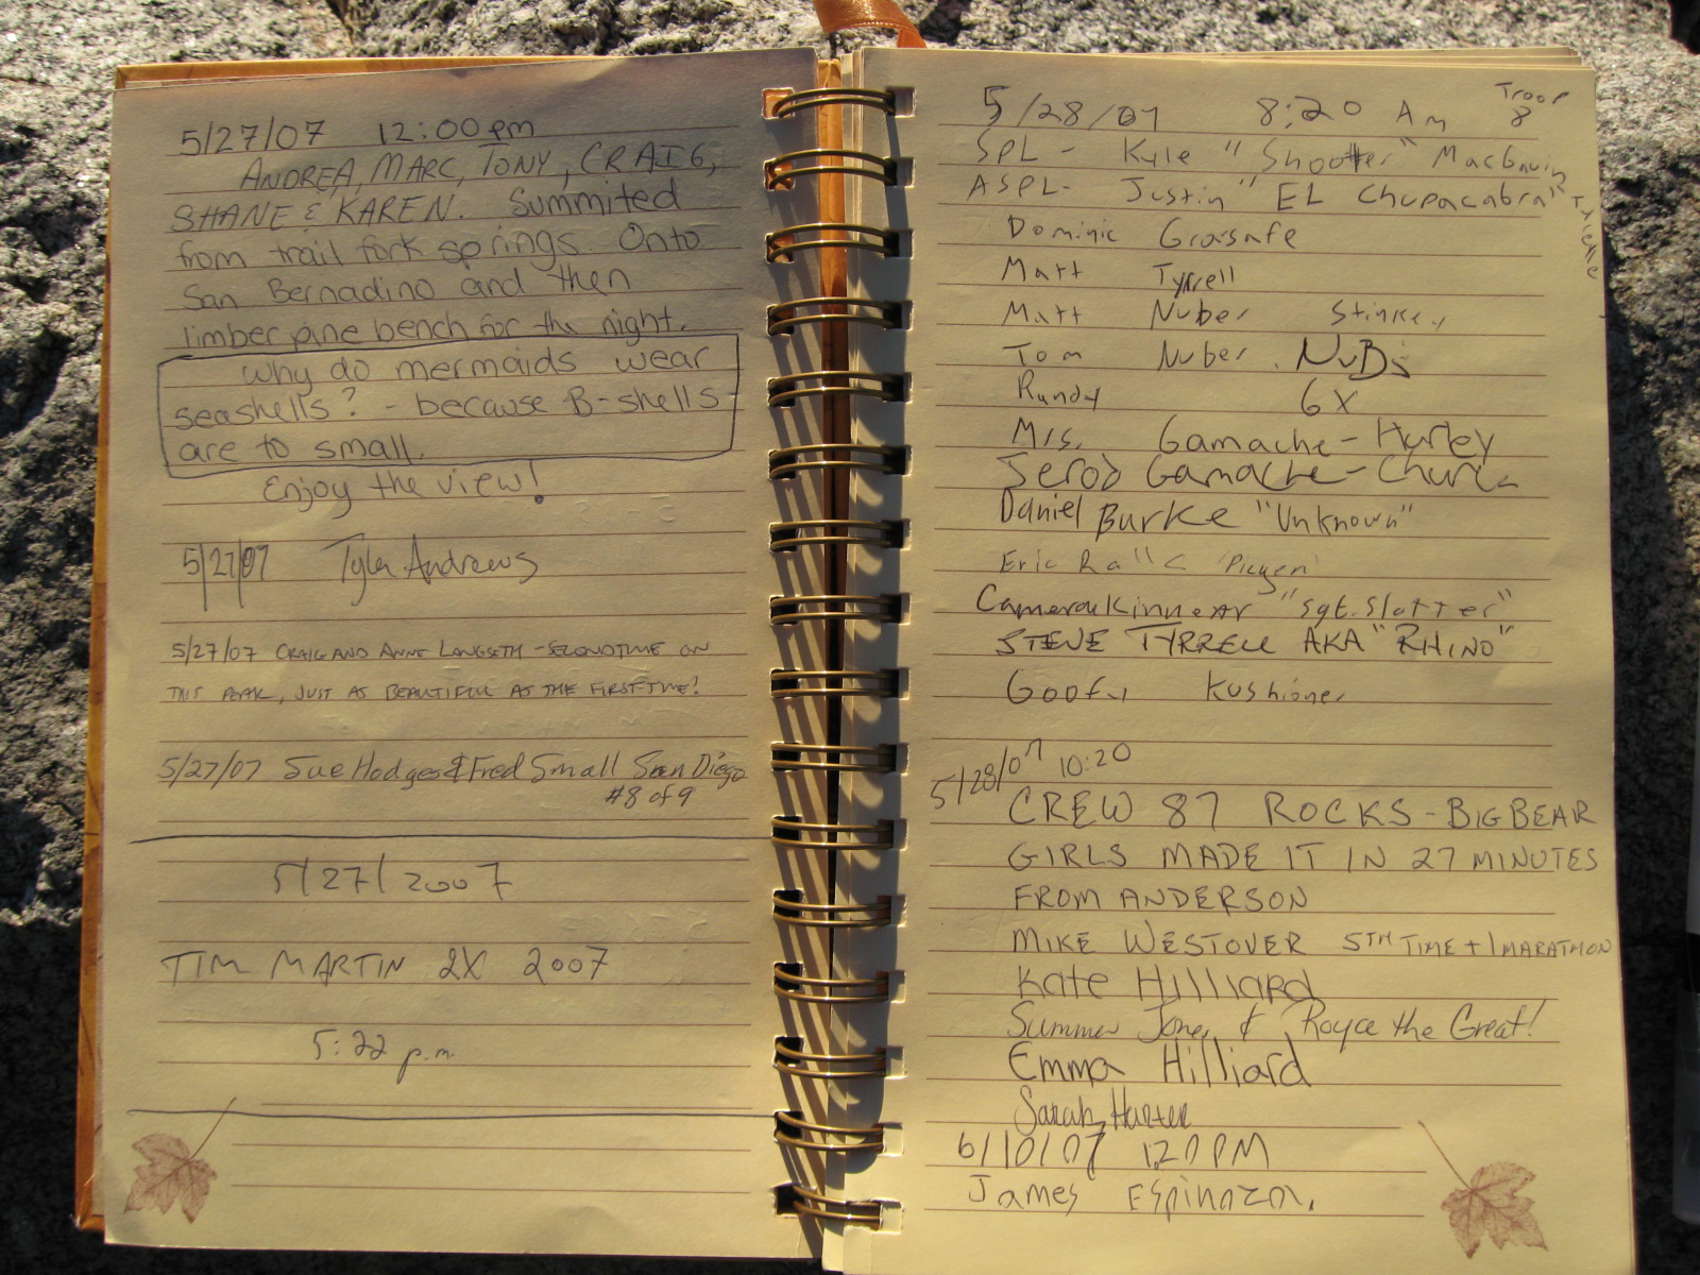 5/27/07 12:00pm
ANDREA, MARC, TONY, CRAIG,
SHANE & KAREN. Summited
from trail fork springs. Onto
San Bernadino and then
limber pine bench for the night.
why do mermaids wear
seashells? - because B-shells
are to small.
Enjoy the view!
5/27/07 Tyler Andrews
5/27/07 CRAIG AND ANNE LANGSETH - SECOND TIME ON
THIS PEAK, JUST AS BEAUTIFUL AS THE FIRST TIME!
5/27/07 Sue Hodges & Fred Small San Diego
#8 of 9
5/27/2007
TIM MARTIN 2X 2007
5:22 p.m.
Troop
5/28/07 8:20 Am 8
SPL - Kyle "Shooter"
ASPL - Justin "EL Chupacabra"
Dominic
Matt Tyrrell
Matt Nuber Stinkey
Tom Nuber
Randy 6X
Mrs. Gamache - Hurley
Jerod Gamache -
Daniel Burke "Unknown"
Eric
Cameron Kinnear "Sgt. Slotter"
STEVE TYRRELL AKA "RHINO"
Goofy Kushioner
5/28/07 10:20
CREW 87 ROCKS - BIG BEAR
GIRLS MADE IT IN 27 MINUTES
FROM ANDERSON
MIKE WESTOVER 5TH TIME + 1 MARATHON
Kate Hilliard
Summer Jones & Royce the Great!
Emma Hilliard
Sarah Harter
6/10/07 120PM
James Espinoza.